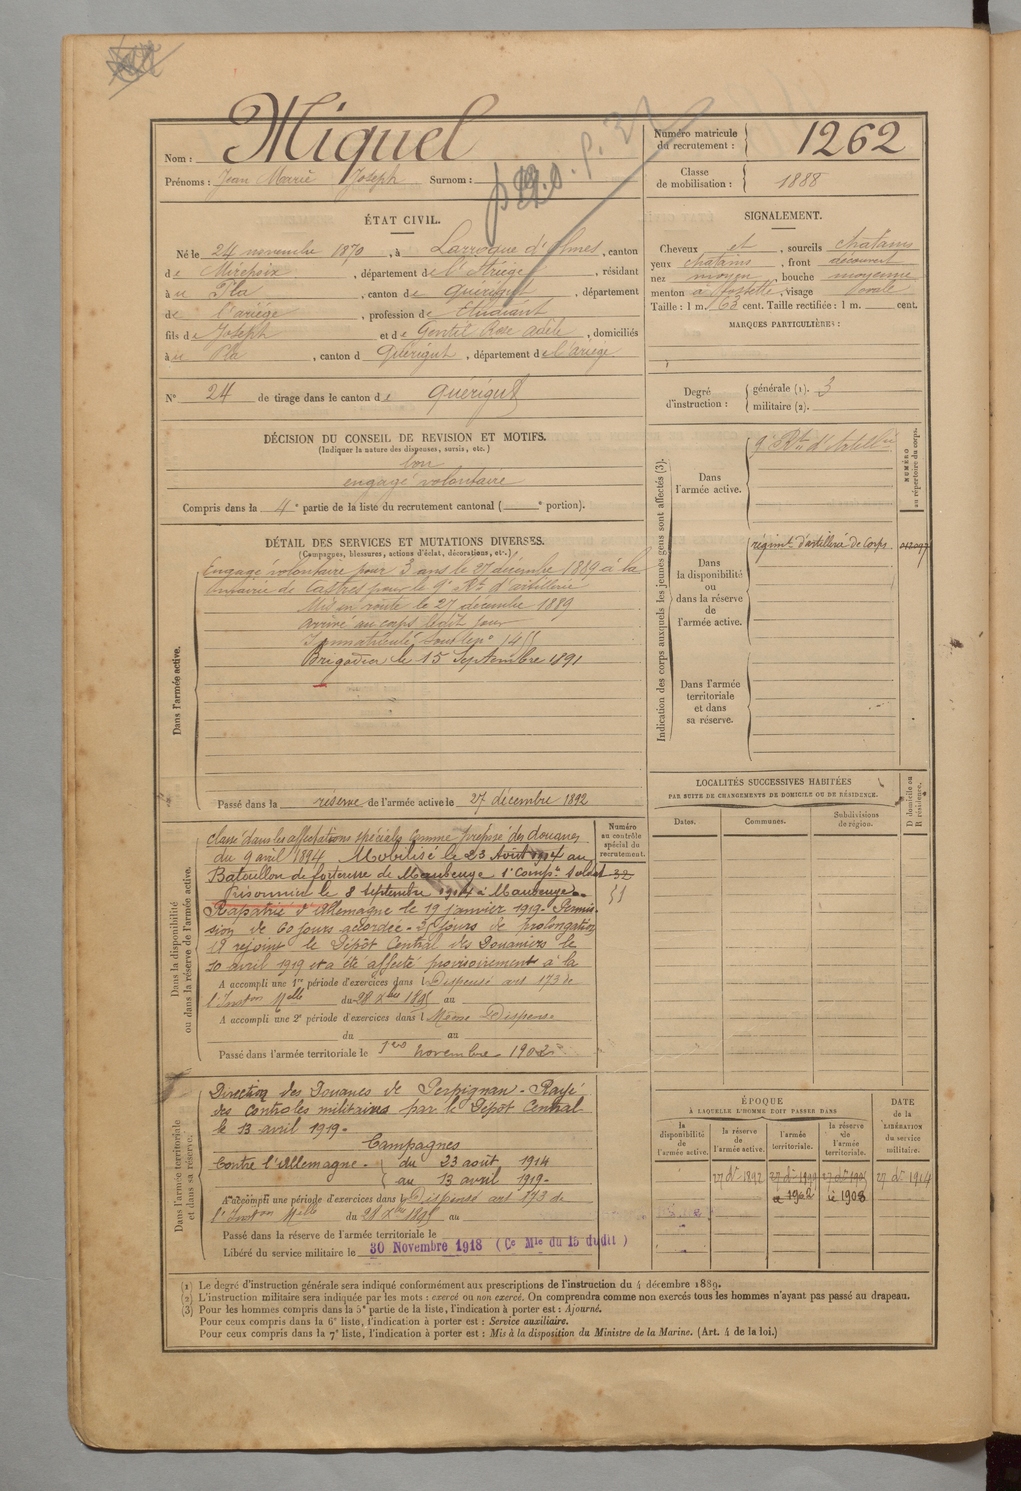 Nom : Miquel
Prénoms : Jean Marie Joseph Surnom :
Numéro matricule du recrutement : 1262
Classe de mobilisation : 1888
ÉTAT CIVIL.
Né le 24 novembre 1870, à Larroque d'Olmes, canton
de Mirepoix, département de l'Ariège, résidant
à u Pla, canton de Quérigut, département
de l'ariège, profession de Etudiant
fils de Joseph et de Gentil Rose adèle, domiciliés
à u Pla, canton d Quérigut, département de l'ariège
N° 24 de tirage dans le canton de Quérigut
SIGNALEMENT.
Cheveux et, sourcils chatains
yeux chatains, front découvert
nez moyen, bouche moyenne
menton à fossette, visage ovale
Taille : 1 m. 63 cent. Taille rectifiée : 1 m. cent.
MARQUES PARTICULIÈRES :
Degré d'instruction : générale (1). 3
militaire (2).
DÉCISION DU CONSEIL DE REVISION ET MOTIFS.
(Indiquer la nature des dispenses, sursis, etc.)
bon
engagé volontaire
Compris dans la 4e partie de la liste du recrutement cantonal ( e portion).
DÉTAIL DES SERVICES ET MUTATIONS DIVERSES.
(Campagnes, blessures, actions d'éclat, décorations, etc.)
Dans l'armée active.
Engagé volontaire pour 3 ans le 27 décembre 1889 à la
mairie de Castres pour le 9e Rt d'artillerie
Mis en route le 27 décembre 1889
arrivé au corps le dit jour
Immatriculé sous le n°
Brigadier le 15 Septembre 1891
Passé dans la réserve de l'armée active le 27 décembre 1892
Indication des corps auxquels les jeunes gens sont affectés (3).
NUMÉRO au répertoire du corps.
Dans l'armée active.
9e Rt d'Artillie
Dans la disponibilité ou dans la réserve de l'armée active.
régimt d'artillerie de corps
Dans l'armée territoriale et dans sa réserve.
LOCALITÉS SUCCESSIVES HABITÉES
PAR SUITE DE CHANGEMENTS DE DOMICILE OU DE RÉSIDENCE.
Dates. Communes. Subdivisions de région. D domicile ou R résidence.
Dans la disponibilité ou dans la réserve de l'armée active.
Numéro au contrôle spécial du recrutement.
32
51
Classé dans les affectations spéciales comme préposé des douanes
du 9 avril 1894 Mobilisé le 23 Août 1914 au
Bataillon de forteresse de Maubeuge 1e Compie soldat
Prisonnier le 8 septembre 1914 à Maubeuge
Rapatrié d'Allemagne le 19 janvier 1919. Permis-
sion de 60 jours accordée - jours de prolongation
rejoint le Dépôt Central des Douaniers le
10 avril 1919 et a été affecté provisoirement à la
A accompli une 1re période d'exercices dans l Dispensé art 173 de
l'Inston Mlle du 28 xbre 1895 au
A accompli une 2e période d'exercices dans l Même Dispense
du au
Passé dans l'armée territoriale le 1er novembre 1902
Dans l'armée territoriale et dans sa réserve.
Direction des Douanes de Perpignan - Rayé
des contrôles militaires par le Dépôt Central
le 13 avril 1919 -
Campagnes
Contre l'Allemagne - du 23 août 1914
au 13 avril 1919 -
A accompli une période d'exercices dans l Dispensé art 173 de
l'Inston Mlle du 28 xbre 1895 au
Passé dans la réserve de l'armée territoriale le
Libéré du service militaire le 30 Novembre 1918 (Ce Mle du 15 dudit)
ÉPOQUE
À LAQUELLE L'HOMME DOIT PASSER DANS
la disponibilité de l'armée active. la réserve de l'armée active. l'armée territoriale. la réserve de l'armée territoriale.
DATE de la LIBÉRATION du service militaire.
27 dre 1892 27 dre 1914
1902 1908
(1) Le degré d'instruction générale sera indiqué conformément aux prescriptions de l'instruction du 4 décembre 1889.
(2) L'instruction militaire sera indiquée par les mots : exercé ou non exercé. On comprendra comme non exercés tous les hommes n'ayant pas passé au drapeau.
(3) Pour les hommes compris dans la 5e partie de la liste, l'indication à porter est : Ajourné.
Pour ceux compris dans la 6e liste, l'indication à porter est : Service auxiliaire.
Pour ceux compris dans la 7e liste, l'indication à porter est : Mis à la disposition du Ministre de la Marine. (Art. 4 de la loi.)